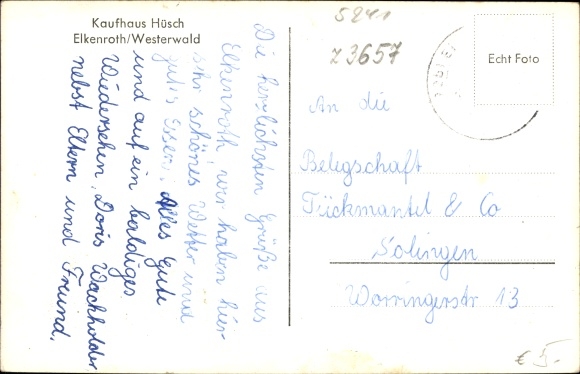 Kaufhaus Hüsch
Elkenroth/Westerwald
Die herzlichsten Grüße aus
Elkenroth! wir haben hier
sehr schönes Wetter und
gutes Essen. Alles Gute
und auf ein baldiges
Wiedersehen, Doris Wachholder
nebst Eltern und Freund.
5241
z 3657
Echt Foto
An die
Belegschaft
Fückmantel & Co
Solingen
Worringerstr 13
€ 5.-